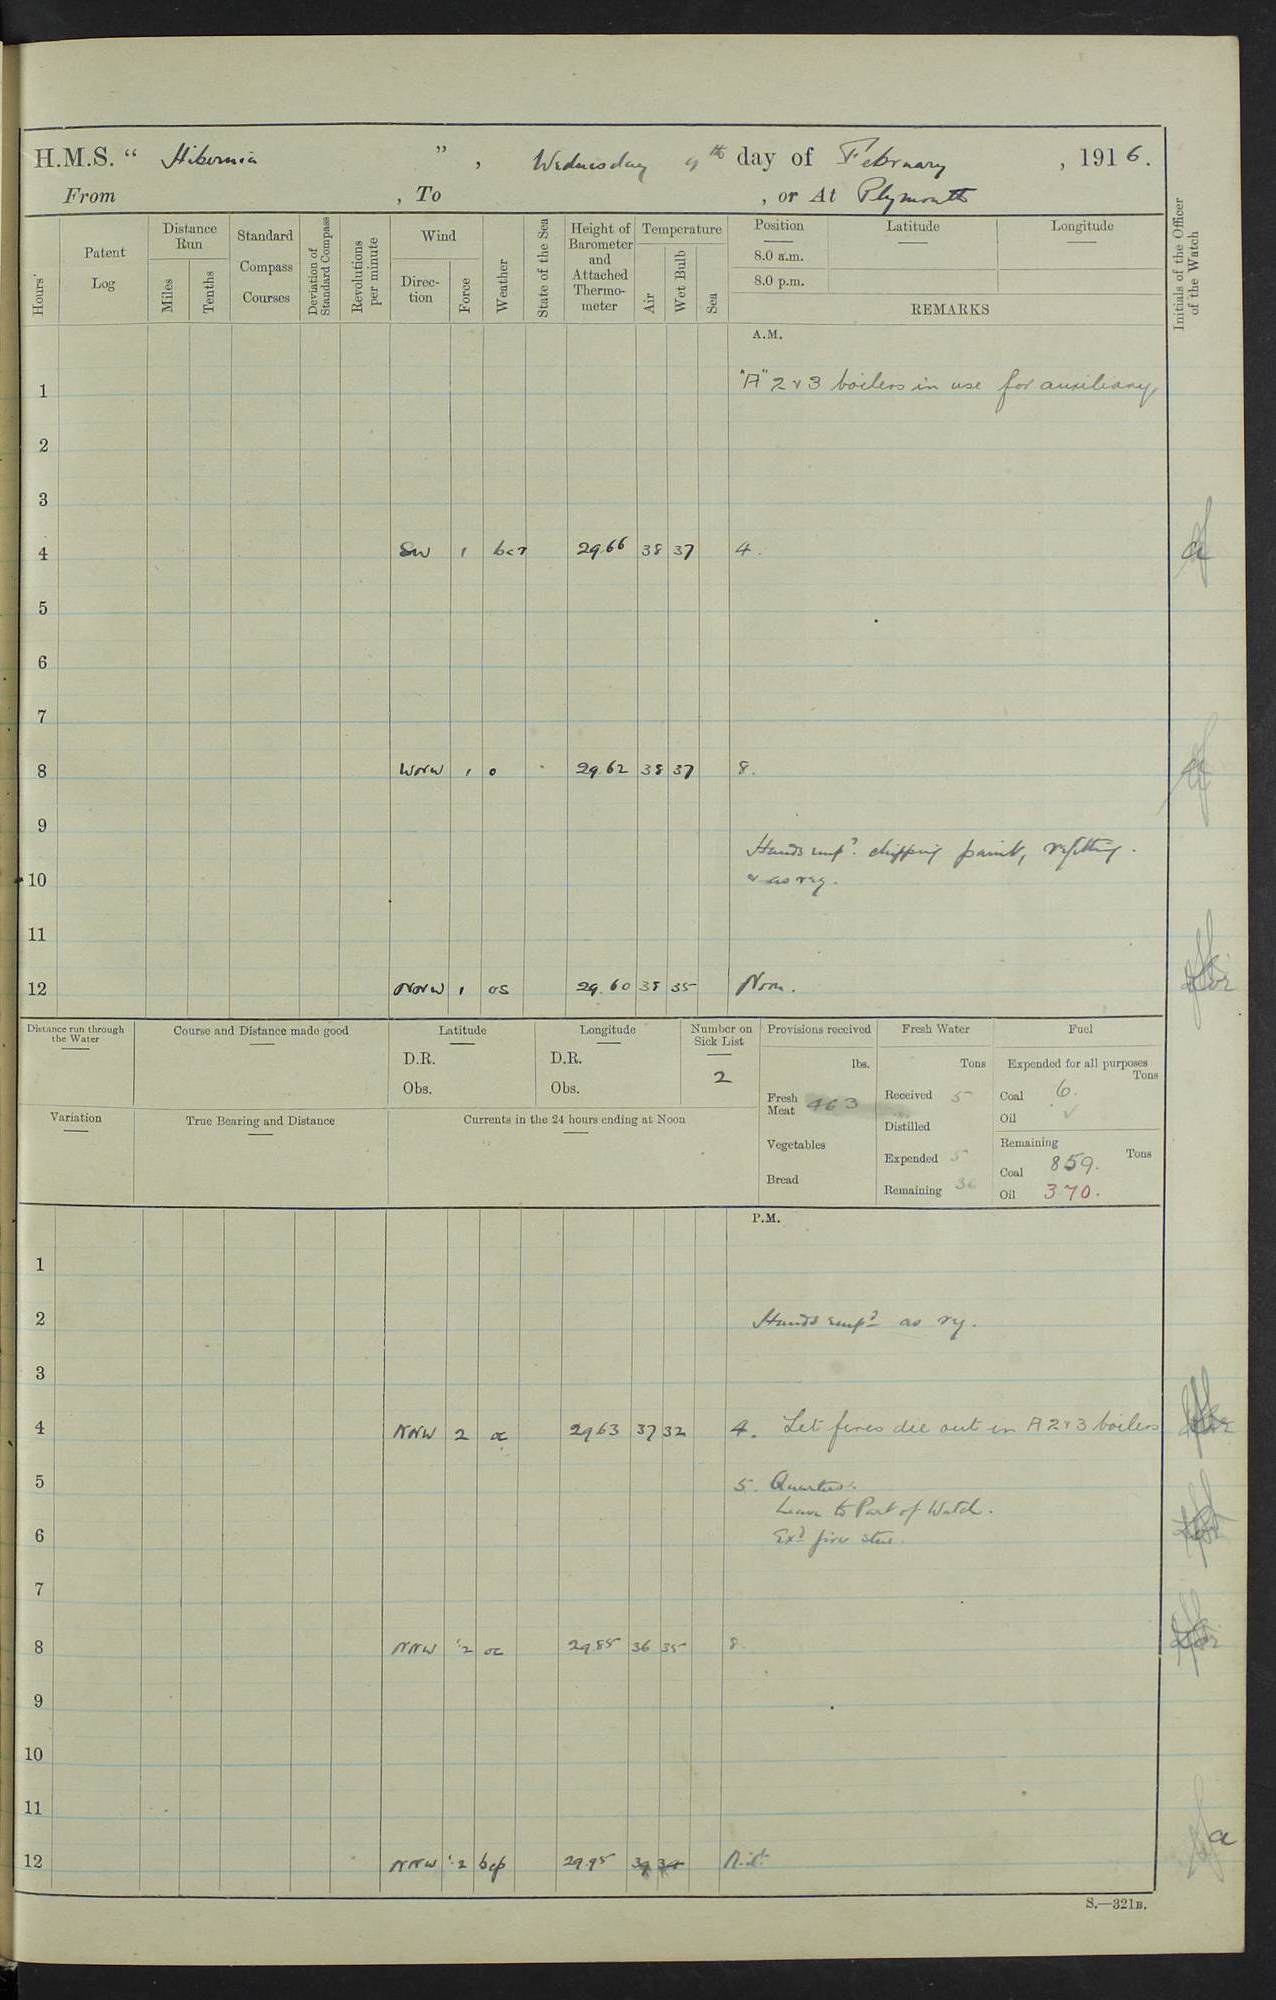 H.M.S. “ Hibernia ” , Wednesday 9th day of February , 1916.
From , To , or At Plymouth
Hours
Patent Log
Distance Run
Miles
Tenths
Standard Compass Courses
Deviation of Standard Compass
Revolutions per minute
Wind
Direction
Force
Weather
State of the Sea
Height of Barometer and Attached Thermometer
Temperature
Air
Wet Bulb
Sea
Position
8.0 a.m.
8.0 p.m.
Latitude
Longitude
REMARKS
Initials of the Officer of the Watch
A.M.
1 "A" 2 & 3 boilers in use for auxiliary
2
3
4 SW 1 bcr 29.66 38 37 4.
5
6
7
8 WNW 1 o 29.62 38 37 8.
9
Hands empd. chipping paint, refitting.
10 & as req.
11
12 NNW 1 os 29.60 38 35 Noon.
Distance run through the Water
Course and Distance made good
Latitude
D.R.
Obs.
Longitude
D.R.
Obs.
Number on Sick List
2
Provisions received
lbs.
Fresh Meat 463
Vegetables
Bread
Fresh Water
Tons
Received 5
Distilled
Expended 5
Remaining 36
Fuel
Expended for all purposes
Tons
Coal 6.
Oil
Remaining
Tons
Coal 859.
Oil 370.
Variation
True Bearing and Distance
Currents in the 24 hours ending at Noon
P.M.
1
2 Hands empd as rq.
3
4 NNW 2 oc 29.63 37 32 4. Let fires die out in A 2 & 3 boilers
5 5. Quarters.
Leave to Part of Watch.
6 Exd fire stns.
7
8 NNW 2 oc 29.85 36 35 8.
9
10
11
12 NNW 2 bcp 29.95 Midt.
S.—321B.